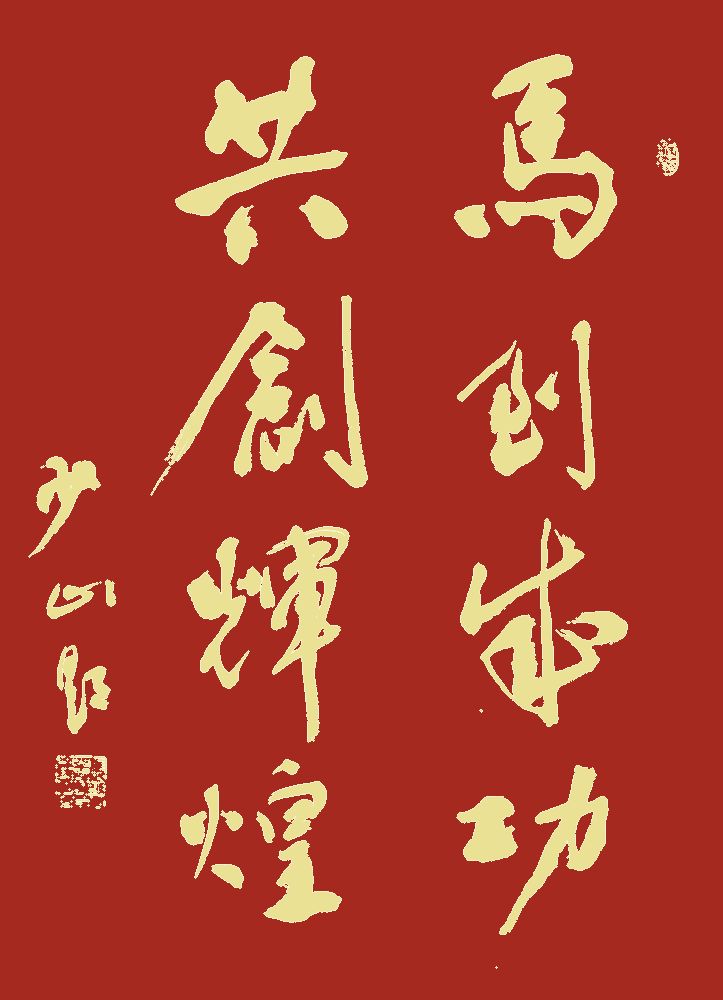 馬到成功
共創輝煌
少山